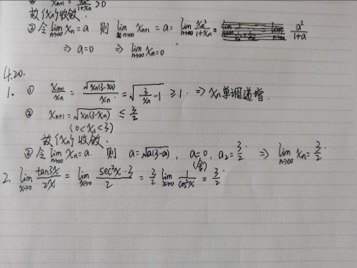 故{xn}收敛.
② 令 lim n→∞ xn = a 则 lim n→∞ xn+1 = a = lim n→∞ xn²/1+xn = a²/1+a
⇒ a=0 ⇒ lim n→∞ xn=0
4.20.
1. ① xn+1/xn = √xn(3-xn)/xn = √(3/xn - 1) ≥ 1. ⇒ xn单调递增.
② xn+1 = √xn(3-xn) ≤ 3/2
(0<xn<3)
故{xn}收敛.
③ 令 lim n→∞ xn = a 则 a=√a(3-a) , a=0(舍) , a2=3/2 ⇒ lim n→∞ xn = 3/2
2. lim x→0 tan3x/2x = lim x→0 sec²x·3/2 = 3/2 lim x→0 1/cos²x = 3/2